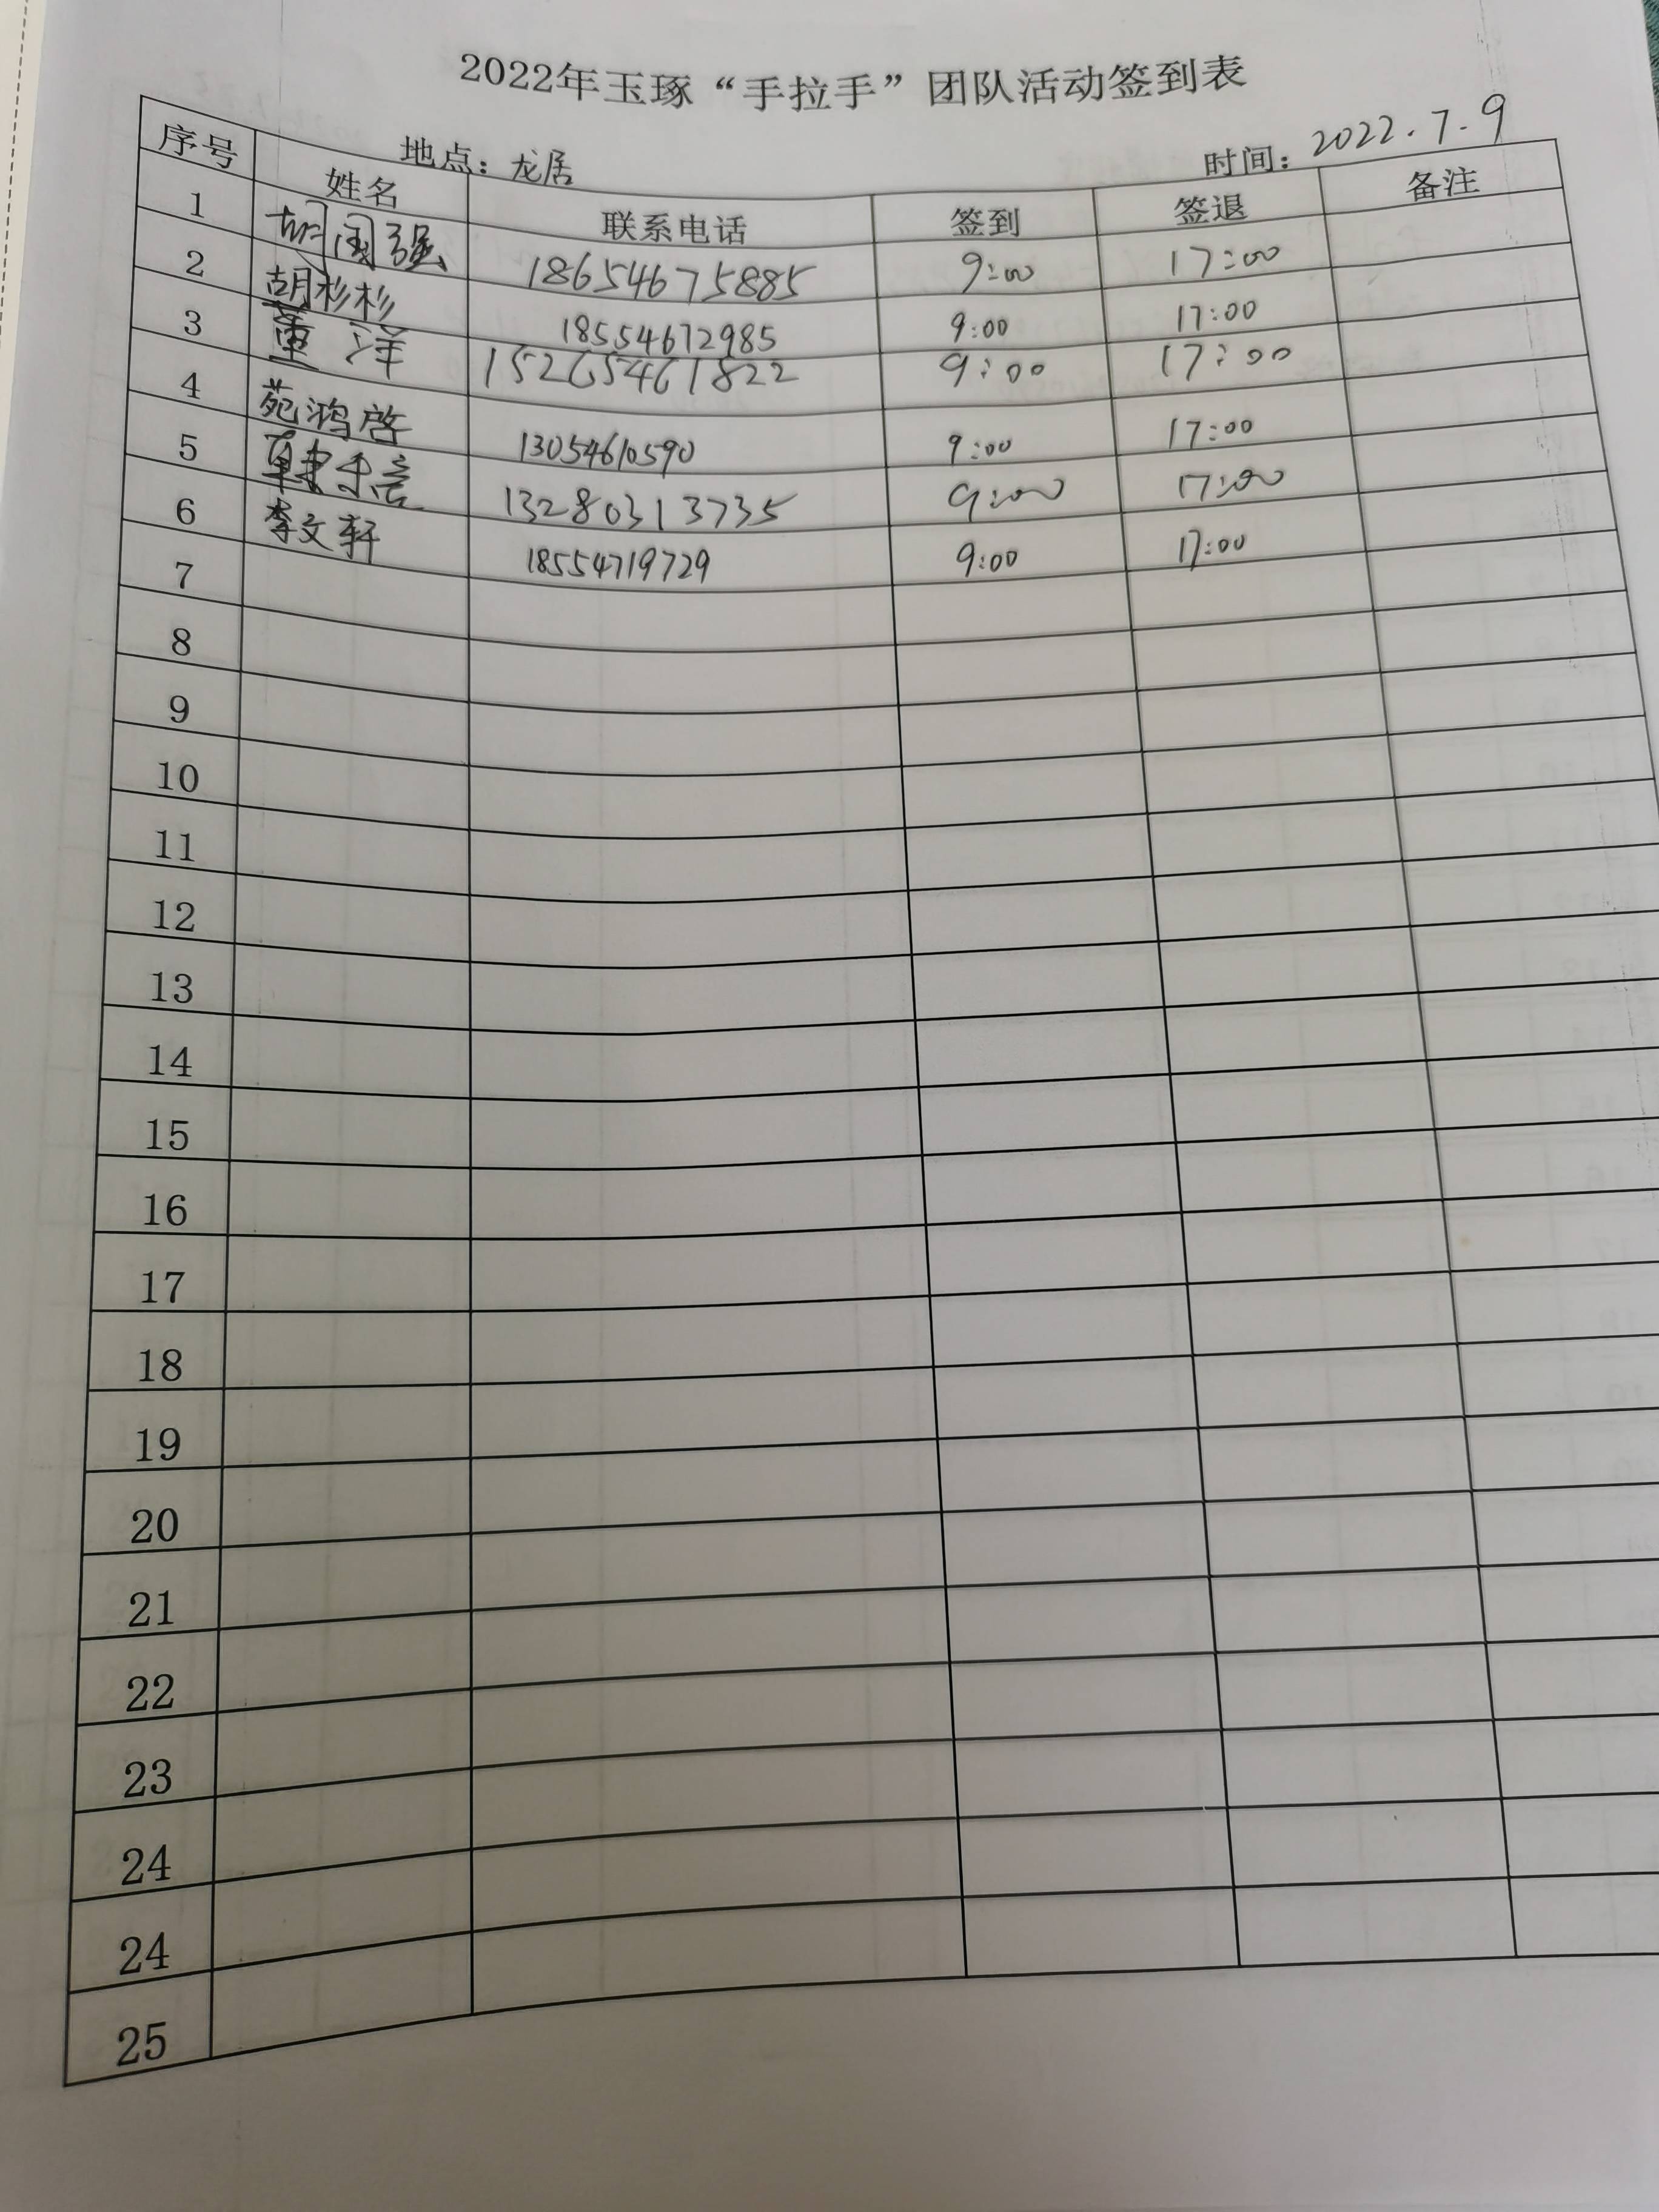 2022年玉琢“手拉手”团队活动签到表
地点：龙居 时间：2022.7.9
序号 姓名 联系电话 签到 签退 备注
1 胡国强 18654675885 9:00 17:00
2 胡杉杉 18554672985 9:00 17:00
3 董洋 15265461822 9:00 17:00
4 苑鸿启 13054610590 9:00 17:00
5 13280313735 9:00 17:00
6 李文轩 18554719729 9:00 17:00
7
8
9
10
11
12
13
14
15
16
17
18
19
20
21
22
23
24
24
25